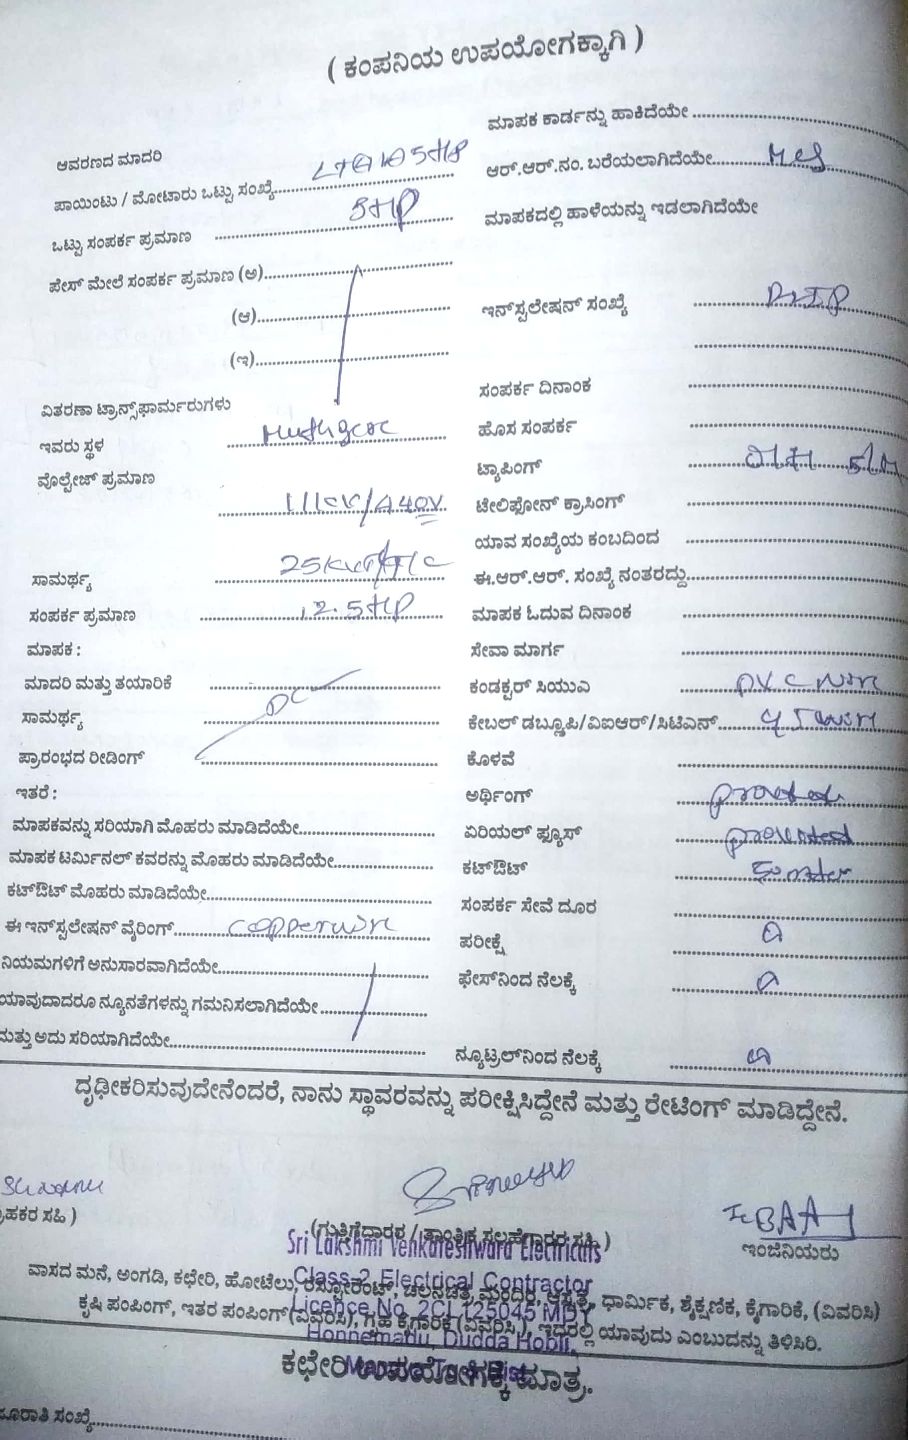 ( ಕಂಪನಿಯ ಉಪಯೋಗಕ್ಕಾಗಿ )
ಆವರಣದ ಮಾದರಿ
ಪಾಯಿಂಟು / ಮೋಟಾರು ಒಟ್ಟು ಸಂಖ್ಯೆ
ಒಟ್ಟು ಸಂಪರ್ಕ ಪ್ರಮಾಣ 5HP
ಪೇಸ್ ಮೇಲೆ ಸಂಪರ್ಕ ಪ್ರಮಾಣ (ಅ)
(ಆ)
(ಇ)
ವಿತರಣಾ ಟ್ರಾನ್ಸ್‌ಫಾರ್ಮರುಗಳು
ಇವರು ಸ್ಥಳ
ವೊಲ್ಟೇಜ್ ಪ್ರಮಾಣ
11KV/440V
ಸಾಮರ್ಥ್ಯ
ಸಂಪರ್ಕ ಪ್ರಮಾಣ 12.5HP
ಮಾಪಕ :
ಮಾದರಿ ಮತ್ತು ತಯಾರಿಕೆ
ಸಾಮರ್ಥ್ಯ
ಪ್ರಾರಂಭದ ರೀಡಿಂಗ್
ಇತರೆ :
ಮಾಪಕವನ್ನು ಸರಿಯಾಗಿ ಮೊಹರು ಮಾಡಿದೆಯೇ
ಮಾಪಕ ಟರ್ಮಿನಲ್ ಕವರನ್ನು ಮೊಹರು ಮಾಡಿದೆಯೇ
ಕಟ್‌ಔಟ್ ಮೊಹರು ಮಾಡಿದೆಯೇ
ಈ ಇನ್‌ಸ್ಟಲೇಷನ್ ವೈರಿಂಗ್
ನಿಯಮಗಳಿಗೆ ಅನುಸಾರವಾಗಿದೆಯೇ
ಯಾವುದಾದರೂ ನ್ಯೂನತೆಗಳನ್ನು ಗಮನಿಸಲಾಗಿದೆಯೇ
ಮತ್ತು ಅದು ಸರಿಯಾಗಿದೆಯೇ
ಮಾಪಕ ಕಾರ್ಡನ್ನು ಹಾಕಿದೆಯೇ
ಆರ್.ಆರ್.ನಂ. ಬರೆಯಲಾಗಿದೆಯೇ
ಮಾಪಕದಲ್ಲಿ ಹಾಳೆಯನ್ನು ಇಡಲಾಗಿದೆಯೇ
ಇನ್‌ಸ್ಟಲೇಷನ್ ಸಂಖ್ಯೆ
ಸಂಪರ್ಕ ದಿನಾಂಕ
ಹೊಸ ಸಂಪರ್ಕ
ಟ್ಯಾಪಿಂಗ್
ಟೇಲಿಫೋನ್ ಕ್ರಾಸಿಂಗ್
ಯಾವ ಸಂಖ್ಯೆಯ ಕಂಬದಿಂದ
ಈ.ಆರ್.ಆರ್. ಸಂಖ್ಯೆ ನಂತರದ್ದು
ಮಾಪಕ ಓದುವ ದಿನಾಂಕ
ಸೇವಾ ಮಾರ್ಗ
ಕಂಡಕ್ಟರ್ ಸಿಯುಎ
ಕೇಬಲ್ ಡಬ್ಲೂಪಿ/ವಿಐಆರ್/ಸಿಟಿಎಸ್
ಕೊಳವೆ
ಅರ್ಥಿಂಗ್
ಏರಿಯಲ್ ಫ್ಯೂಸ್
ಕಟ್‌ಔಟ್
ಸಂಪರ್ಕ ಸೇವೆ ದೂರ
ಪರೀಕ್ಷೆ
ಫೇಸ್‌ನಿಂದ ನೆಲಕ್ಕೆ
ನ್ಯೂಟ್ರಲ್‌ನಿಂದ ನೆಲಕ್ಕೆ
ದೃಢೀಕರಿಸುವುದೇನೆಂದರೆ, ನಾನು ಸ್ಥಾವರವನ್ನು ಪರೀಕ್ಷಿಸಿದ್ದೇನೆ ಮತ್ತು ರೇಟಿಂಗ್ ಮಾಡಿದ್ದೇನೆ.
ಸಹಿ )
(ಗುತ್ತಿಗೆದಾರರ / ತಾಂತ್ರಿಕ ಸಲಹೆಗಾರರ ಸಹಿ )
ಇಂಜಿನಿಯರು
Sri Lakshmi Venkateshwara Electricals
Class-2 Electrical Contractor
Licence No. 2CL125045 MDY
Honnemadu, Dudda Hobli,
ವಾಸದ ಮನೆ, ಅಂಗಡಿ, ಕಛೇರಿ, ಹೋಟೆಲು, ರೆಸ್ಟೋರೆಂಟ್, ಚಲನಚಿತ್ರ, ಮಂದಿರ, ಆಸ್ಪತ್ರೆ, ಧಾರ್ಮಿಕ, ಶೈಕ್ಷಣಿಕ, ಕೈಗಾರಿಕೆ, (ವಿವರಿಸಿ)
ಕೃಷಿ ಪಂಪಿಂಗ್, ಇತರ ಪಂಪಿಂಗ್(ವಿವರಿಸಿ), ಗೃಹ ಕೈಗಾರಿಕೆ (ವಿವರಿಸಿ), ಇದರಲ್ಲಿ ಯಾವುದು ಎಂಬುದನ್ನು ತಿಳಿಸಿರಿ.
ಕಛೇರಿ ಉಪಯೋಗಕ್ಕೆ ಮಾತ್ರ.
ಸಂಖ್ಯೆ